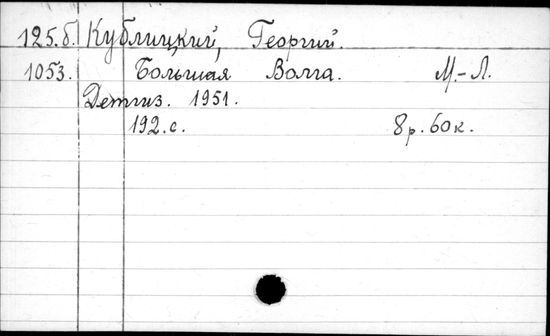 125.б. Кублицкий, Георгий.
1053. Большая Волга. М.-Л.
Детгиз. 1951.
192.с. 8р.60к.